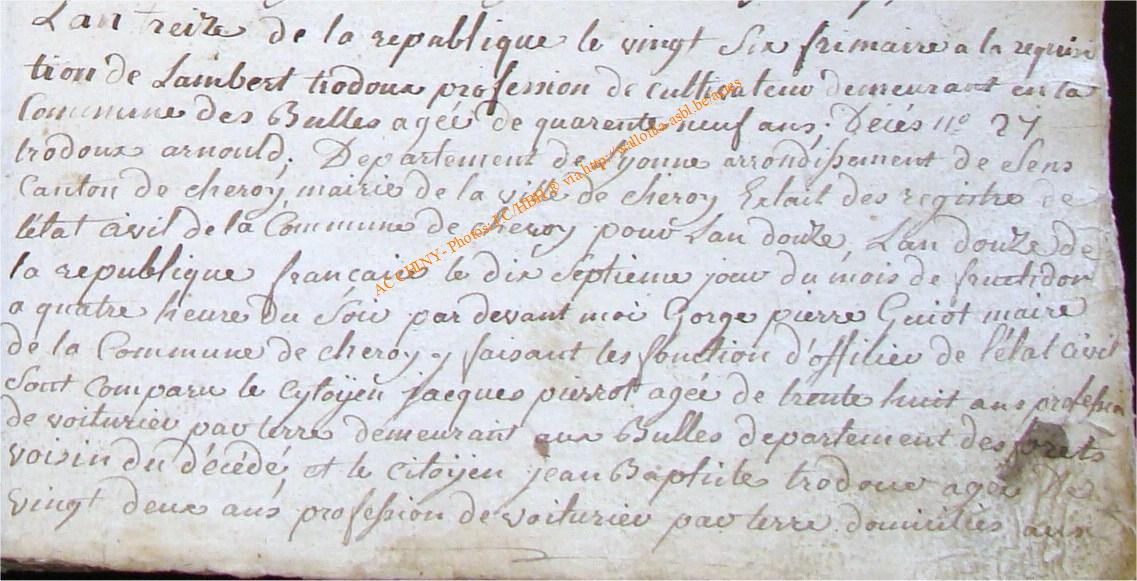 L'an treize de la republique le vingt six frimaire a la requisi
tion de Lambert trodoux profession de cultivateur demeurant en la
Commune des Bulles agée de quarente neuf ans; Décés n° 27
trodoux arnould. Departement de lyonne arrondissement de Sens
Canton de cheroy, mairie de la ville de cheroy Extait des registre de
l'état civil de la Commune de cheroy pour Lan douze. Lan douze de
la republique française le dix septieme jour du mois de fructidor
a quatre heure du Soir par devant moi Gorge pierre Guiot maire
de la Commune de cheroy y faisant les fonction d'officier de l'état civil
Sont comparu le cytoÿen jacques pierrot agée de trente huit ans professio
de voiturier par terre demeurant aux Bulles departement des forets
voisin du décédé, et le citoÿen jean Baptiste trodoux agée de
vingt deux ans profession de voiturier par terre domiciliés aux
AC CHINY - Photos: LC/HBR @ via http://wallonia-asbl.be/apges